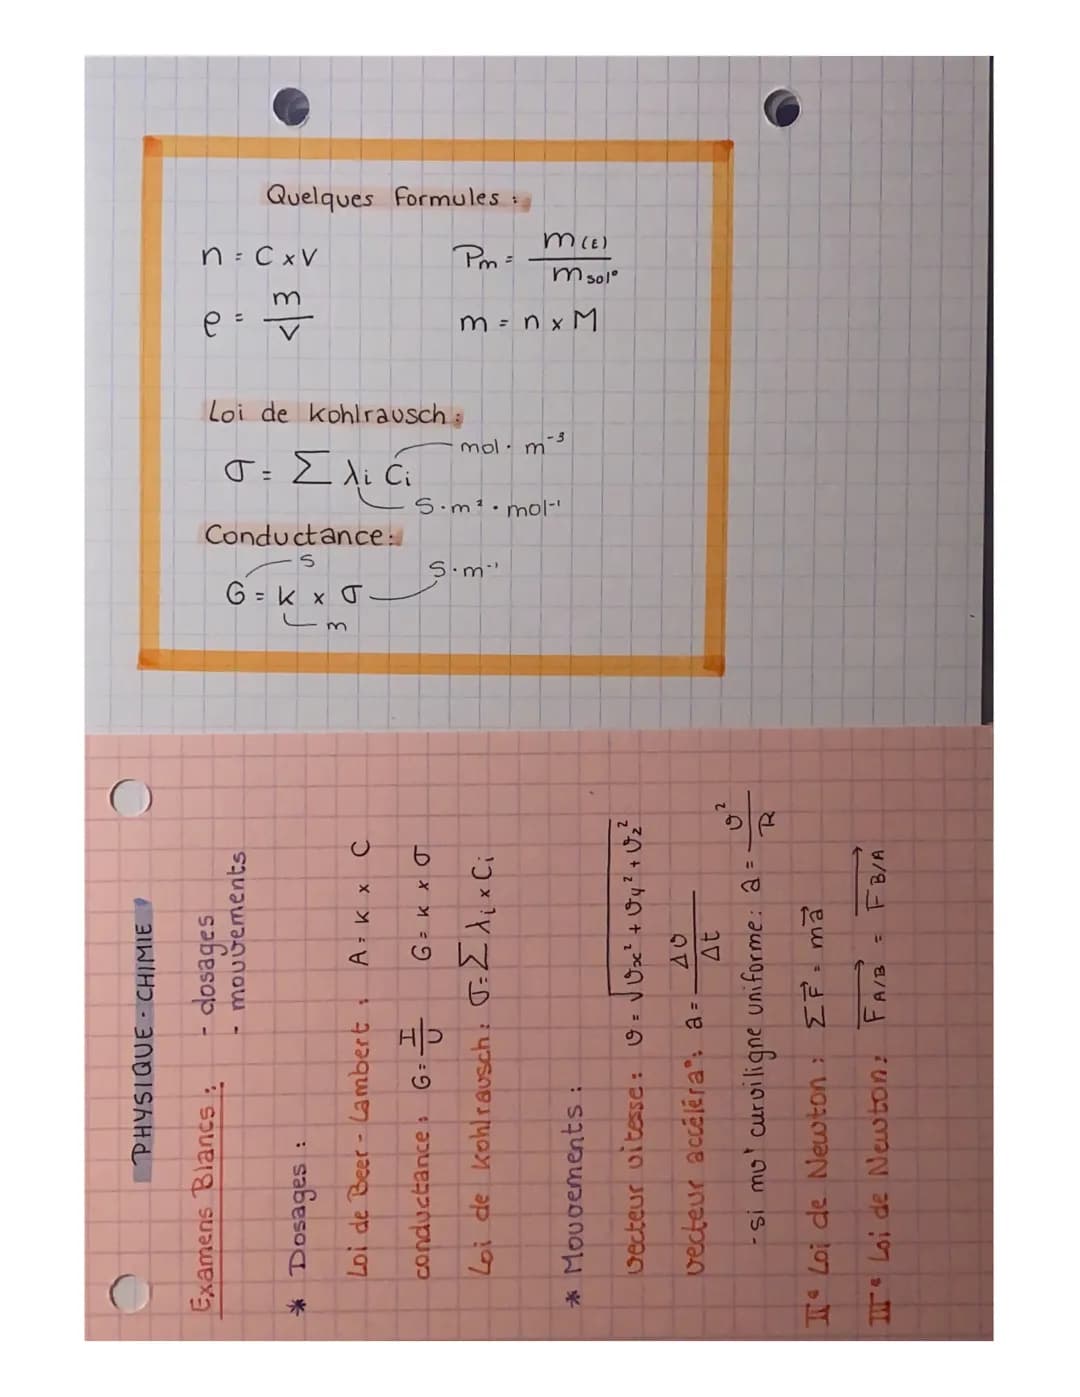 Quelques formules :
n = C x V
Pm = m(E) / m sol°
ρ = m / V
m = n x M
Loi de Kohlrausch :
mol · m⁻³
σ = Σ λi Ci
S·m²·mol⁻¹
Conductance :
S
S·m⁻¹
G = k x σ
m
PHYSIQUE - CHIMIE
Examens Blancs : - dosages
- mouvements
* Dosages :
Loi de Beer - Lambert : A = K x C
conductance : G = I / U G = K x σ
Loi de Kohlrausch : σ = Σ λi x Ci
* Mouvements :
vecteur vitesse : v = √vx² + vy² + vz²
vecteur accéléra° : a = Δv / Δt
- si mv' curviligne uniforme : a = v² / R
IIe Loi de Newton : ΣF⃗ = ma⃗
IIIe Loi de Newton : F⃗A/B = F⃗B/A